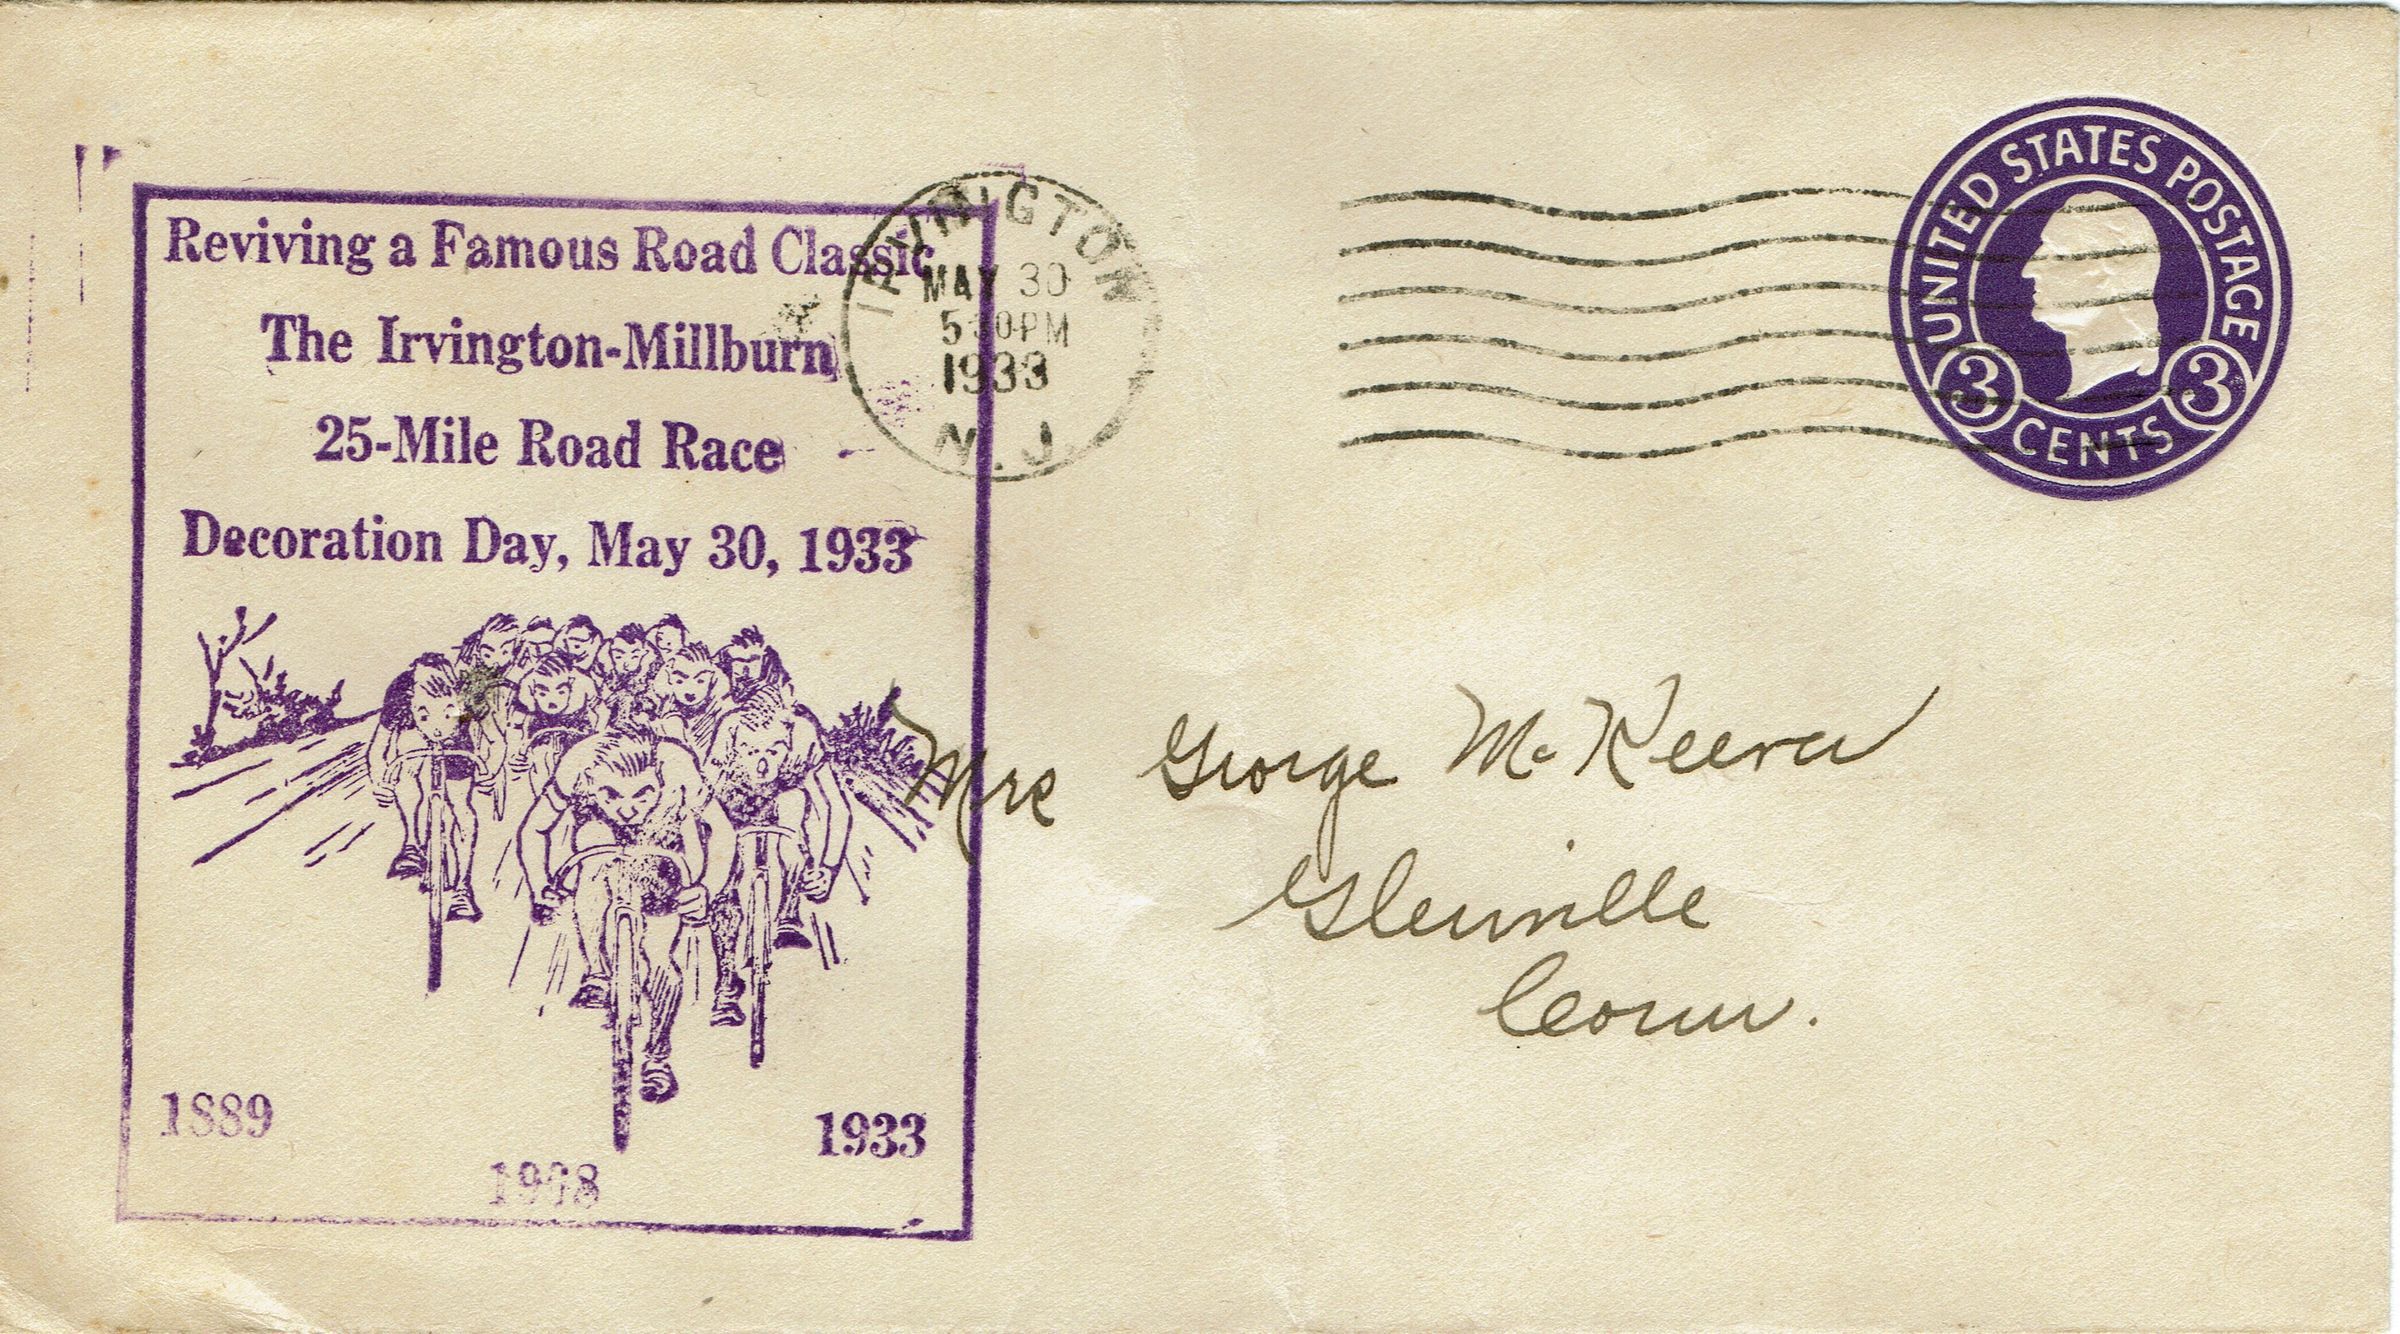 Reviving a Famous Road Classic
The Irvington-Millburn
25-Mile Road Race
Decoration Day, May 30, 1933
1889
1933
1908
IRVINGTON
MAY 30
530PM
1933
N.J.
UNITED STATES POSTAGE
3 3
CENTS
Mrs George McKeever
Glenville
Conn.